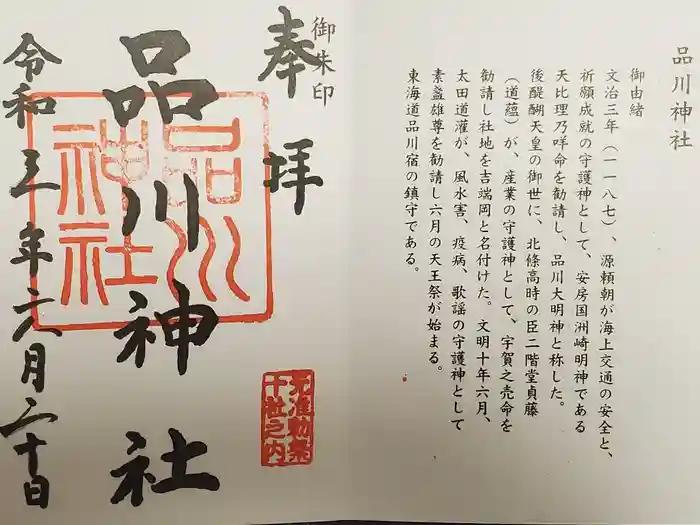 品川神社
御由緒
文治三年（一一八七）、源頼朝が海上交通の安全と、
祈願成就の守護神として、安房国洲崎明神である
天比理乃咩命を勧請し、品川大明神と称した。
後醍醐天皇の御世に、北條高時の臣二階堂貞藤
（道蘊）が、産業の守護神として、宇賀之売命を
勧請し社地を吉端岡と名付けた。文明十年六月、
太田道灌が、風水害、疫病、歌謡の守護神として
素盞雄尊を勧請し六月の天王祭が始まる。
東海道品川宿の鎮守である。
御朱印
奉拝
品川神社
品川
神社
元准勅祭
十社之内
令和三年六月二十日